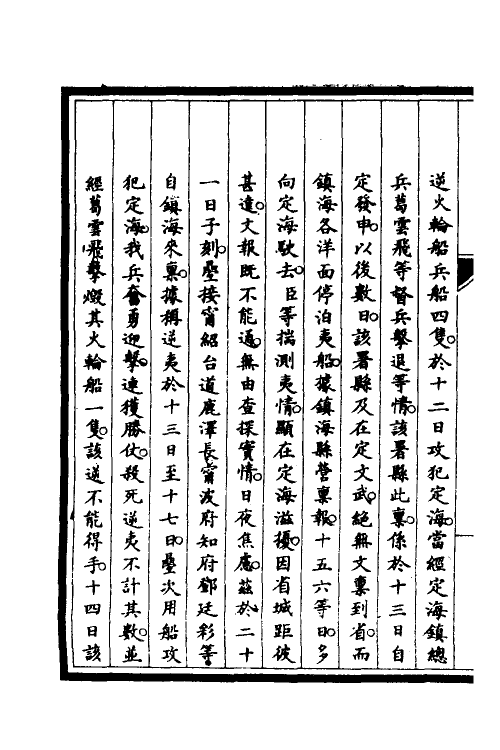 逆火輪船兵船四隻。於十二日攻犯定海。當經定海鎮總
兵葛雲飛等督兵擊退等情。該署縣此稟。係於十三日自
定發申。以後數日。該署縣及在定文武。絕無文稟到省。而
鎮海各洋面停泊夷船。據鎮海縣營稟報。十五六等日。多
向定海駛去。臣等揣測夷情。顯在定海滋擾。因省城距彼
甚遠。文報既不能通。無由查探實情。日夜焦慮。茲於二十
一日子刻。疊接甯紹台道鹿澤長甯波府知府鄧廷彩等
自鎮海來稟。據稱逆夷於十三日至十七日。疊次用船攻
犯定海。我兵奮勇迎擊。連獲勝仗。殺死逆夷不計其數。並
經葛雲飛擊燬其火輪船一隻。該逆不能得手。十四日該